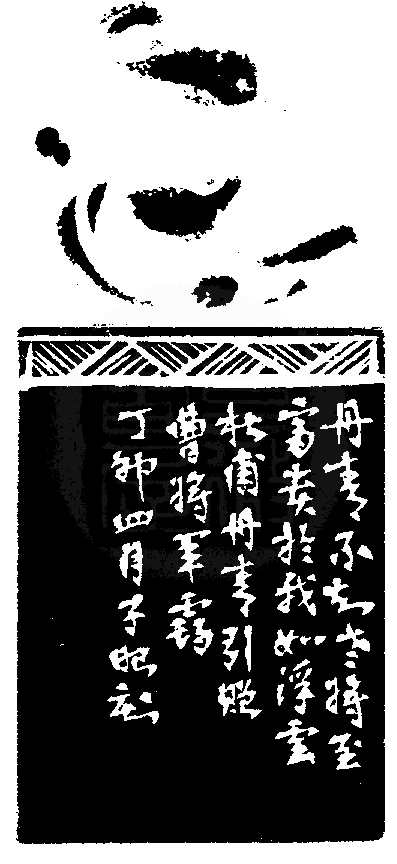 丹青不知老將至
富貴於我如浮雲
杜甫丹青引贈
曹將軍霸
丁卯四月子昭